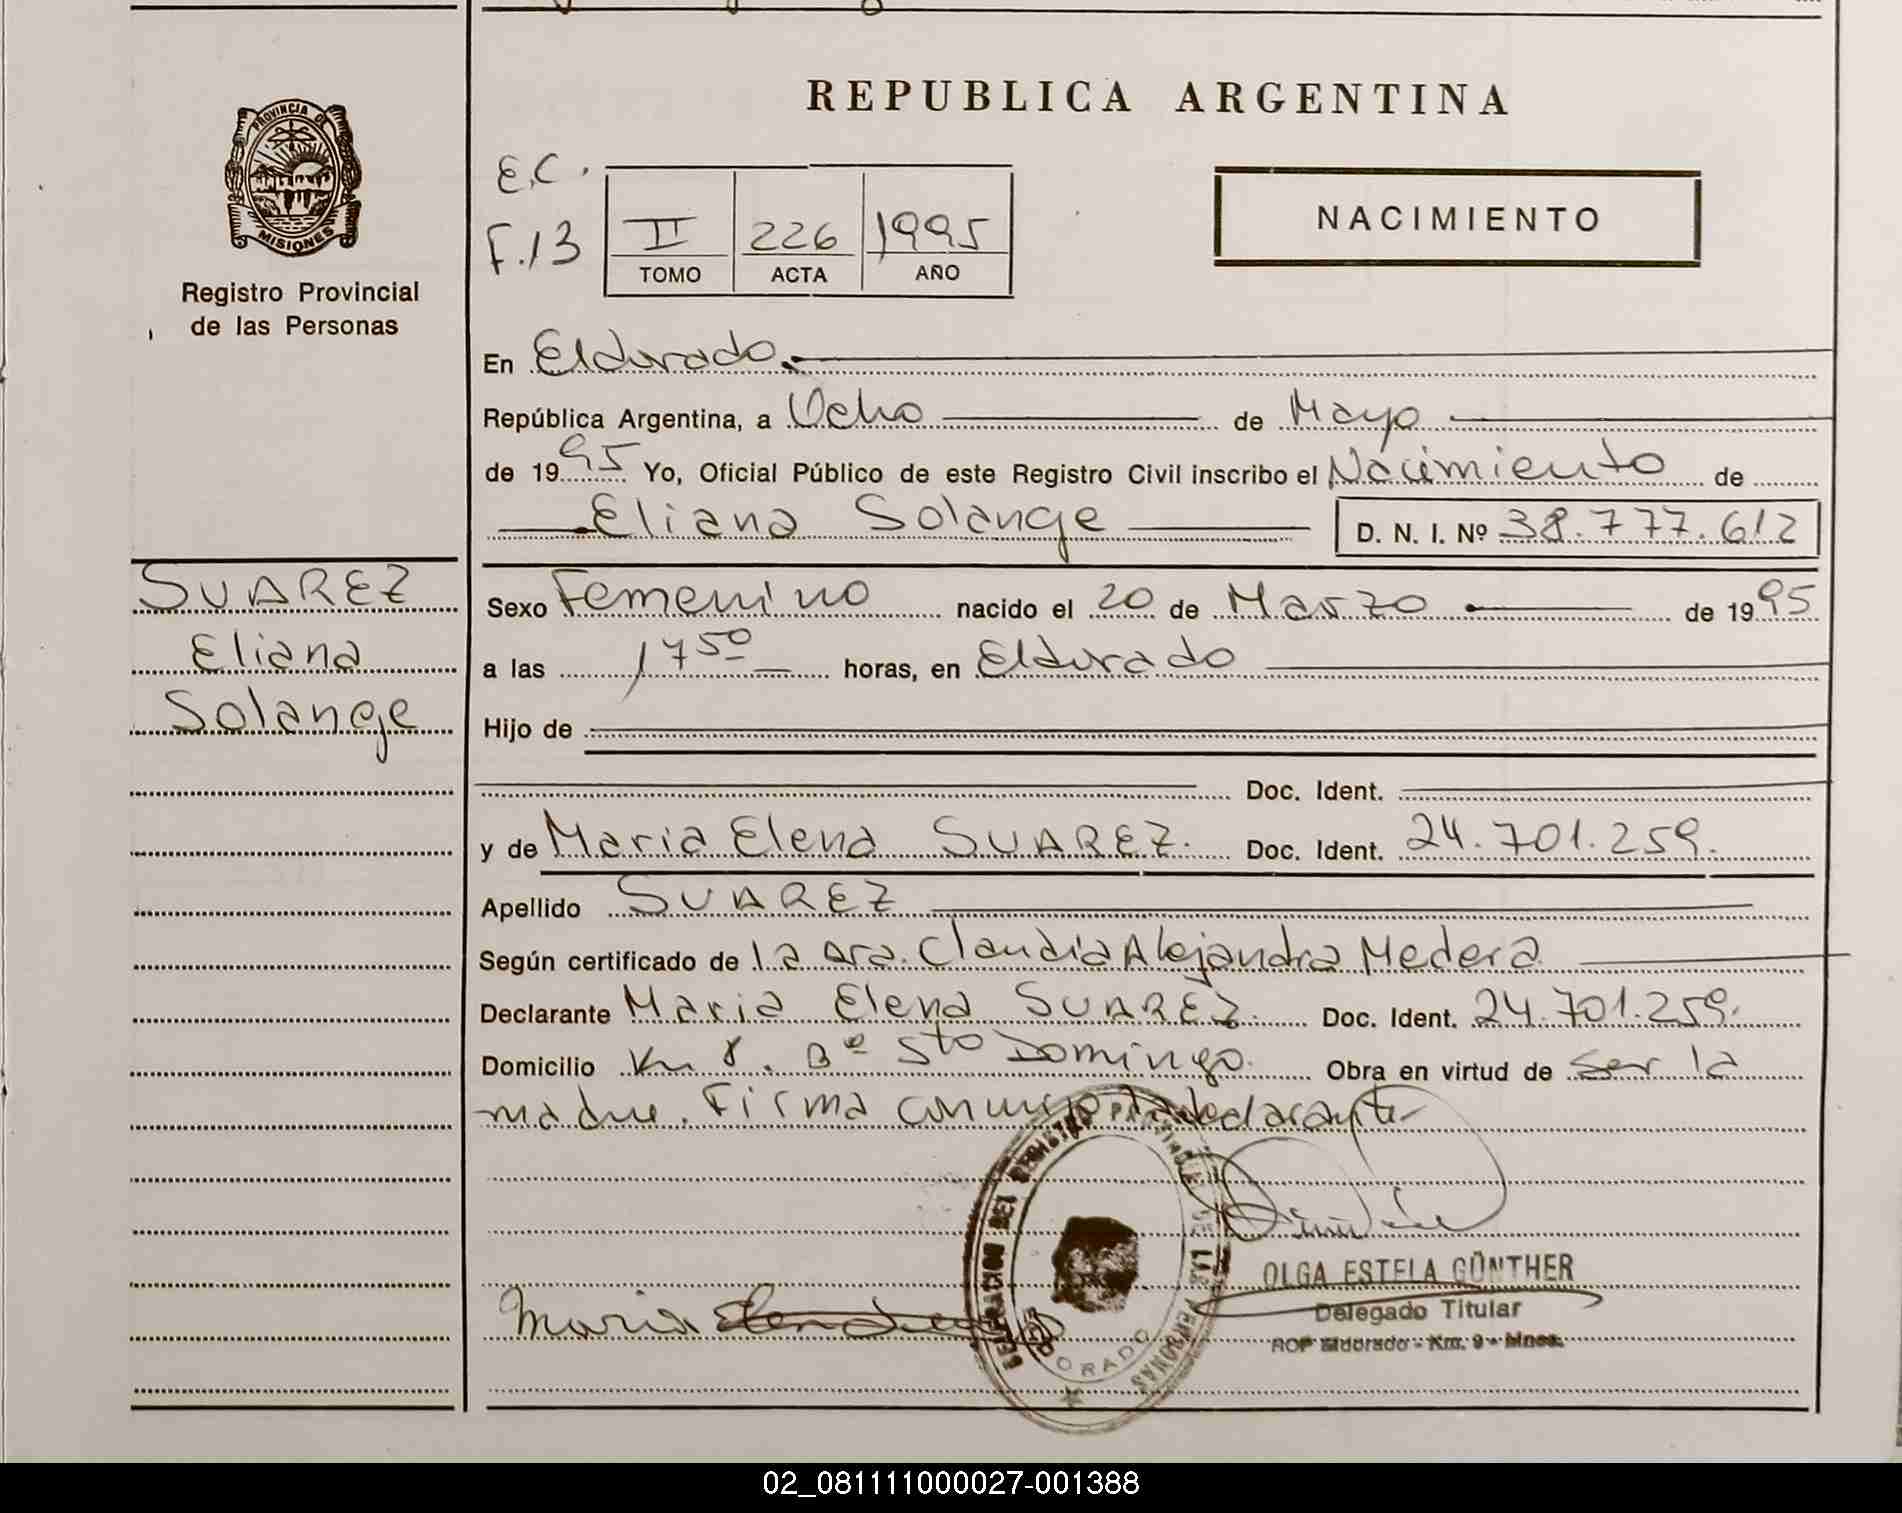 PROVINCIA DE
MISIONES
Registro Provincial
de las Personas
SUAREZ
Eliana
Solange
REPUBLICA ARGENTINA
E.C.
F.13
II 226 1995
TOMO ACTA AÑO
NACIMIENTO
En Eldorado.
República Argentina, a Ocho de Mayo
de 1995 Yo, Oficial Público de este Registro Civil inscribo el Nacimiento de
Eliana Solange D. N. I. Nº 38.777.612
Sexo Femenino nacido el 20 de Marzo de 1995
a las 1750 horas, en Eldorado
Hijo de
Doc. Ident.
y de Maria Elena SUAREZ. Doc. Ident. 24.701.259.
Apellido SUAREZ
Según certificado de la Dra. Claudia Alejandra Medera
Declarante Maria Elena SUAREZ. Doc. Ident. 24.701.259.
Domicilio Km 8. Bº Sto Domingo. Obra en virtud de ser la
madre. Firma conmigo la declarante
DELEGACION DEL REGISTRO PROVINCIAL DE LAS PERSONAS
ELDORADO
Maria
OLGA ESTELA GÜNTHER
Delegado Titular
RCP Eldorado - Km. 9 - Mnes.
02_081111000027-001388